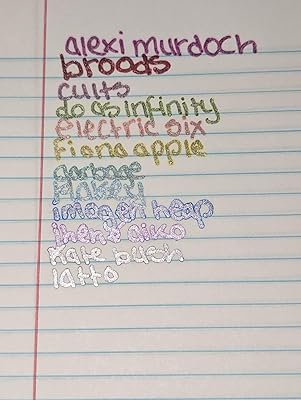 alexi murdoch
broods
cults
do as infinity
electric six
fiona apple
garbage
halsey
imogen heap
jhené aiko
kate bush
latto